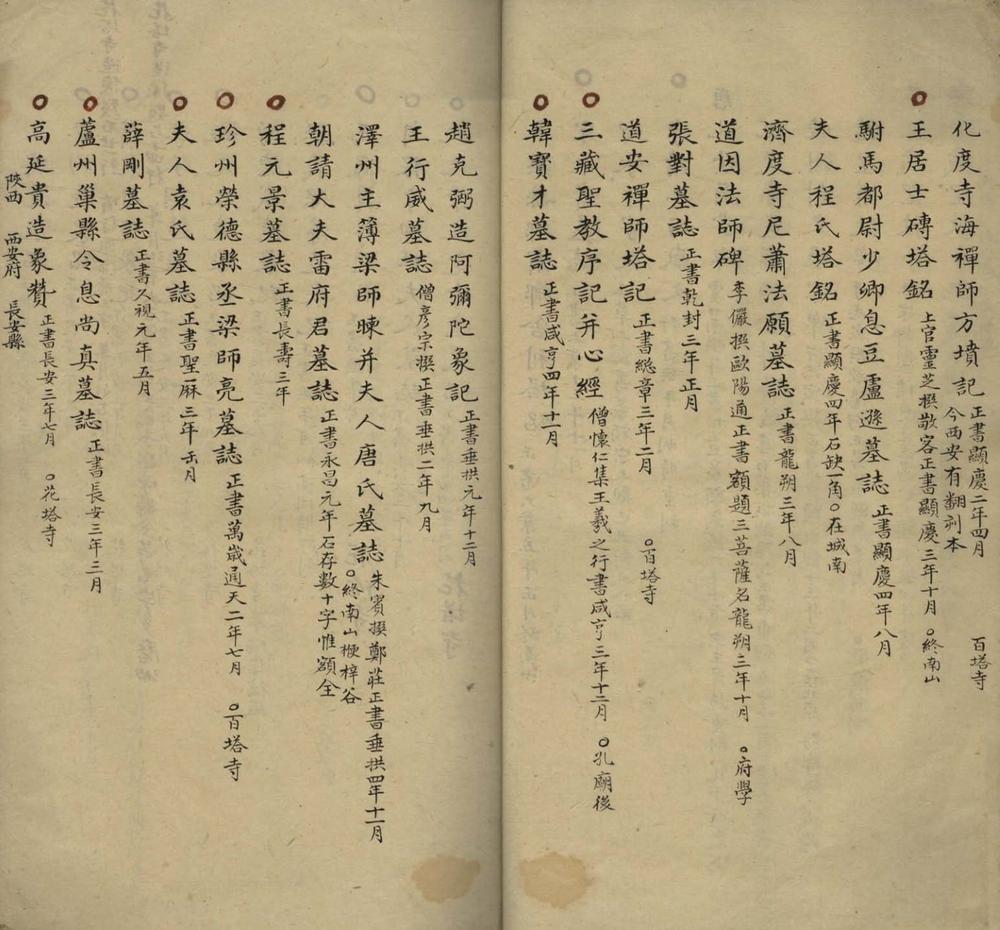 化度寺海禪師方墳記 正書顯慶二年四月 今西安有翻刻本 百塔寺
王居士磚塔銘 上官靈芝撰敬客正書顯慶三年十月 。終南山
駙馬都尉少卿息豆盧遜墓誌 正書顯慶四年八月
夫人程氏塔銘 正書顯慶四年石缺一角。在城南
濟度寺尼蕭法願墓誌 正書龍朔三年八月
道因法師碑 李儼撰歐陽通正書額題三菩薩名龍朔三年十月 。府學
張對墓誌 正書乾封三年正月
道安禪師塔記 正書總章三年二月 。百塔寺
三藏聖教序記并心經 僧懷仁集王羲之行書咸亨三年十二月 。孔廟後
韓寶才墓誌 正書咸亨四年十一月
趙克弼造阿彌陀象記 正書垂拱元年十二月
王行威墓誌 僧彥宗撰正書垂拱二年九月
澤州主簿梁師暕并夫人唐氏墓誌 朱賓撰鄭莊正書垂拱四年十一月 。終南山楩梓谷
朝請大夫雷府君墓誌 正書永昌元年石存數十字惟額全
程元景墓誌 正書長壽三年
珍州榮德縣丞梁師亮墓誌 正書萬歲通天二年七月 。百塔寺
夫人袁氏墓誌 正書聖厤三年 月
薛剛墓誌 正書久視元年五月
廬州巢縣令息尚真墓誌 正書長安三年二月
高延貴造象贊 正書長安三年七月 。花塔寺
陝西 西安府 長安縣